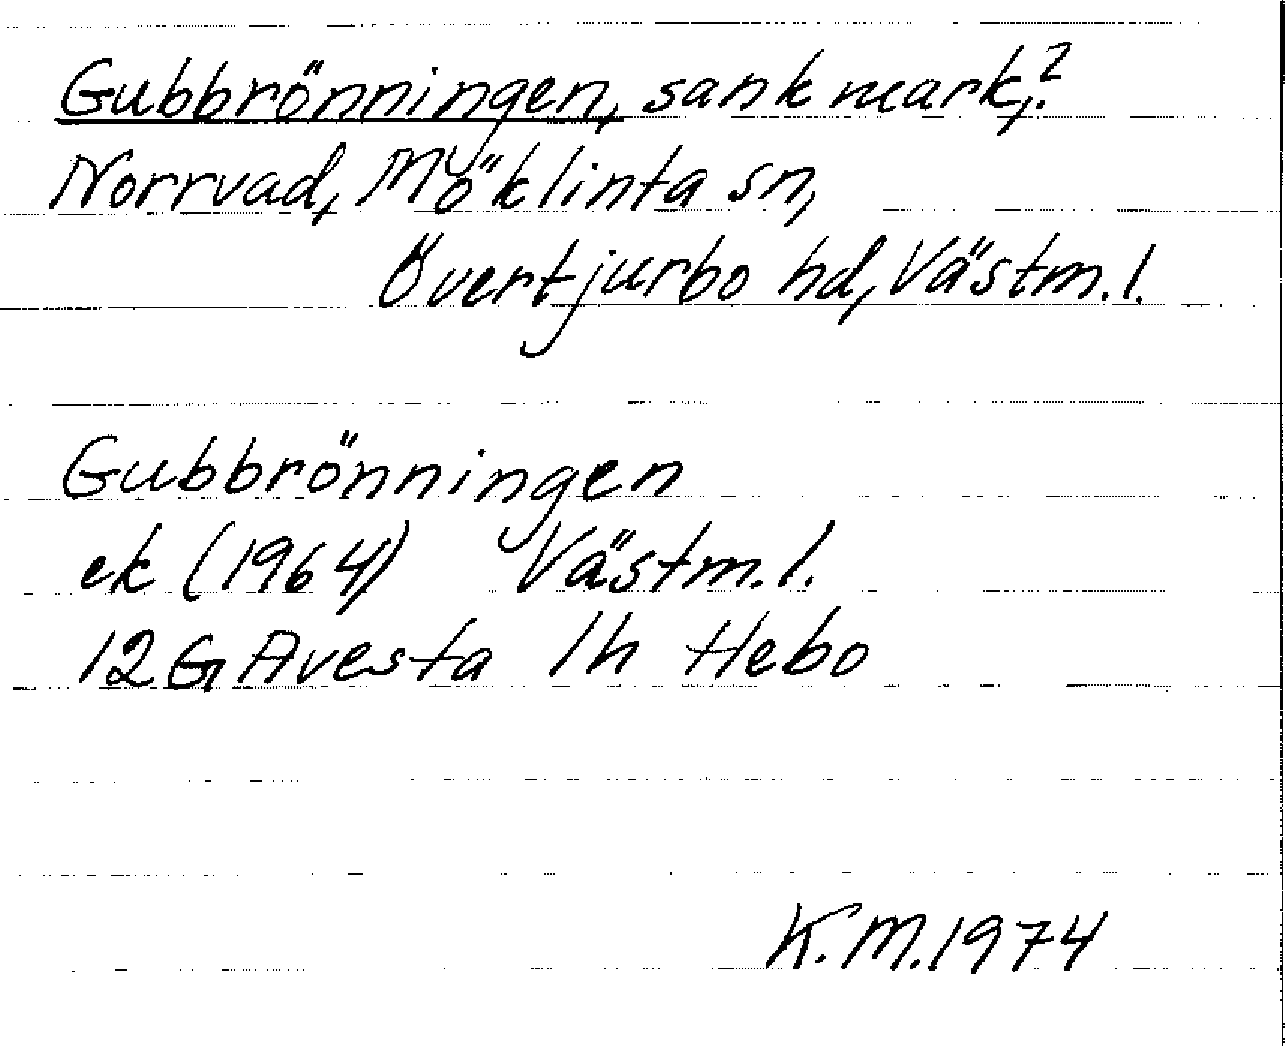 Gubbrönningen, sank mark,?
Norrvad, Möklinta sn,
Övertjurbo hd, Västm.l.
Gubbrönningen
ek (1964) Västm.l.
12G Avesta 1h Hebo
K.M.1974